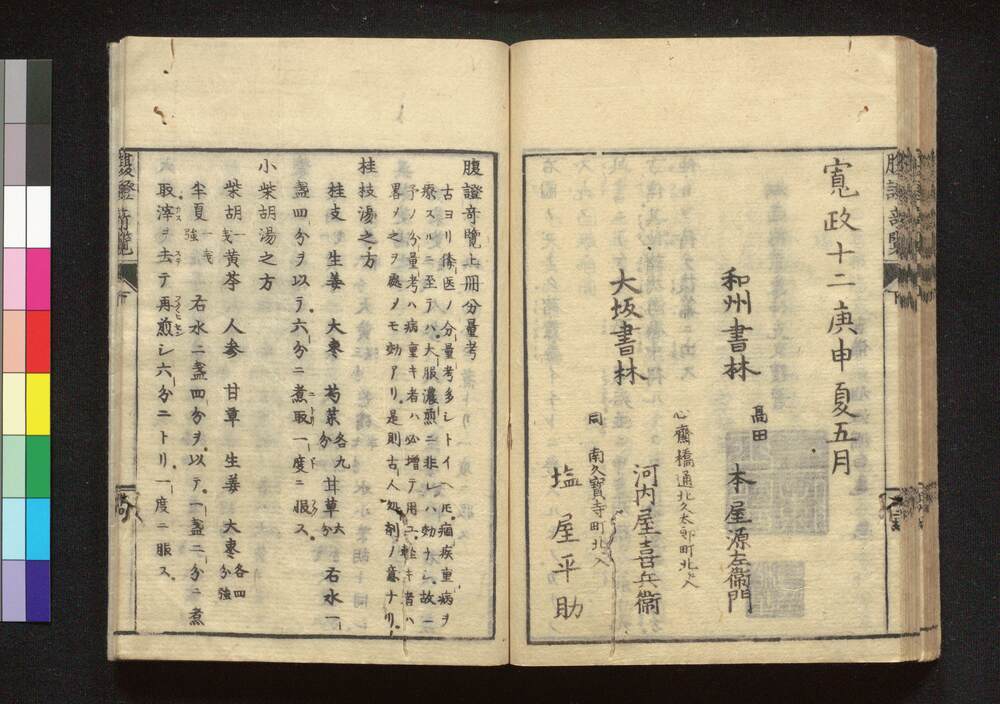 寛政十二庚申夏五月
和州書林
高田
本屋源左衛門
心齋橋通北久太郎町北ヘ入
大坂書林
河内屋喜兵衛
同
南久寳寺町北入
塩屋平助
腹證奇覽上冊分量考
古ヨリ諸医ノ分量考多シトイヘ𪜈痼疾重病ヲ
療スルニ至テハ大服濃煎ニ非レハ効ナシ故ニ
予ノ分量考ハ病重キ者ハ必増テ用ユ軽キ者ハ
畧メ之ヲ處メモ効アリ是則古人処剤ノ意ナリ
桂枝湯之方
桂支 生姜 大棗 芍薬各九分 甘草六分 右水一
盞四分ヲ以テ六分ニ煮取一度ニ服ス
小柴胡湯之方
柴胡一戔 黄芩 人参 甘草 生姜 大棗各四分強
半夏一戔強 右水二盞四分ヲ以テ一盞二分ニ煮
取滓ヲ去テ再煎シ六分ニトリ一度ニ服ス
腹證奇覽
下